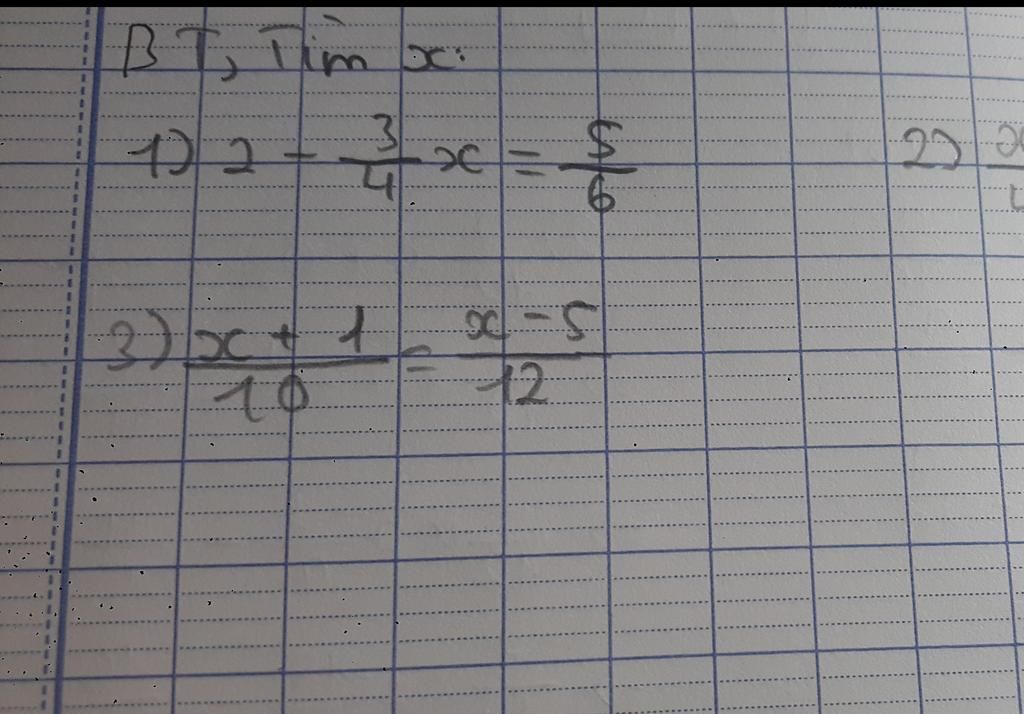 BT, Tìm x:
1) 2 - \frac{3}{4} x = \frac{5}{6} 2)
3) \frac{x + 1}{10} = \frac{x - 5}{12}